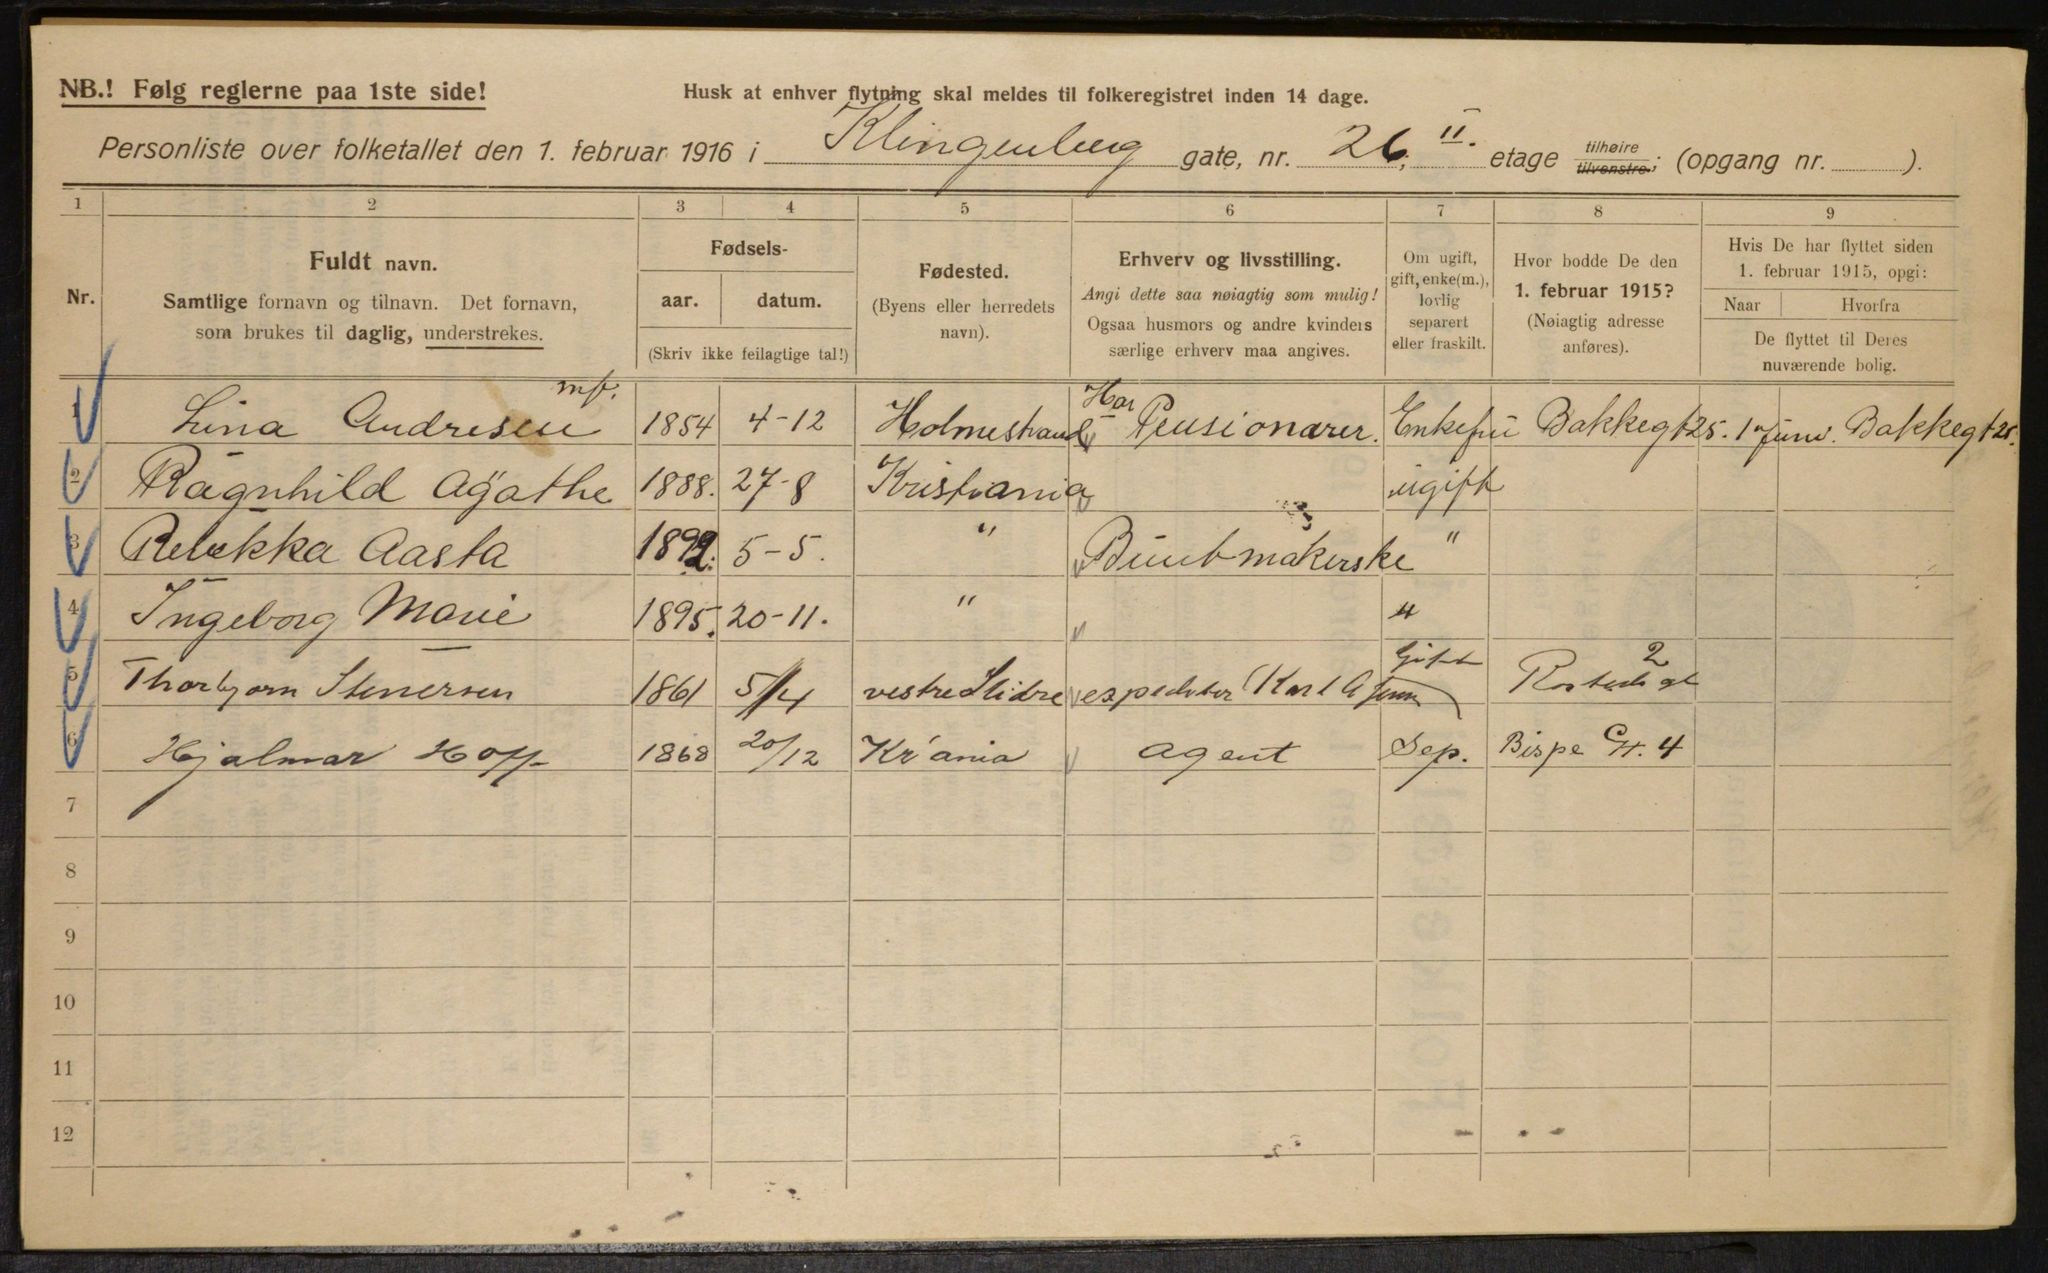 NB.! Følg reglerne paa 1ste side!
Husk at enhver flytning skal meldes til folkeregistret inden 14 dage.
Personliste over folketallet den 1. februar 1916 i Klingenberg gate, nr. 26, II. etage tilhøire tilvenstre; (opgang nr. ).
1 2 3 4 5 6 7 8 9
Nr.
Fuldt navn.
Samtlige fornavn og tilnavn. Det fornavn,
som brukes til daglig, understrekes.
Fødsels-
aar. datum.
(Skriv ikke feilagtige tal!)
Fødested.
(Byens eller herredets
navn).
Erhverv og livsstilling.
Angi dette saa nøiagtig som mulig!
Ogsaa husmors og andre kvinders
særlige erhverv maa angives.
Om ugift,
gift, enke(m.),
lovlig
separert
eller fraskilt.
Hvor bodde De den
1. februar 1915?
(Nøiagtig adresse
anføres).
Hvis De har flyttet siden
1. februar 1915, opgi:
Naar Hvorfra
De flyttet til Deres
nuværende bolig.
1 Lina Andresen 1854 4-12 Holmestrand Har Pensionærer. Enkefru Bakkegt 25. 1 Juni. Bakkegt 25.
2 Ragnhild Agathe 1888. 27-8 Kristiania ugift
3 Rebekka Aasta 1892. 5-5. " Buntmakerske "
4 Ingeborg Marie 1895. 20-11. " "
5 Thorbjørn Stenersen 1861 5/4 vestre Slidre expeditør (Karl A Gift 2
6 Hjalmar Hoff 1868 20/12 Kr'ania agent Sep. Bispe Gt. 4
7
8
9
10
11
12